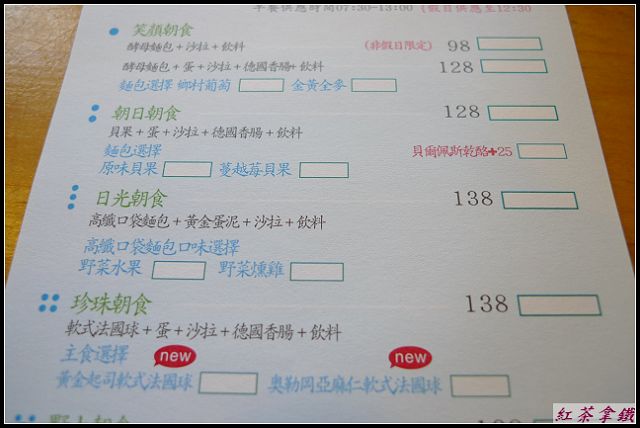 早餐供應時間07:30-13:00 (假日供應至12:30
笑顏朝食
酵母麵包+沙拉+飲料 (非假日限定) 98
酵母麵包+蛋+沙拉+德國香腸+飲料 128
麵包選擇 鄉村葡萄 金黃全麥
朝日朝食 128
貝果+蛋+沙拉+德國香腸+飲料
麵包選擇 貝爾佩斯乾酪+25
原味貝果 蔓越莓貝果
日光朝食 138
高纖口袋麵包+黃金蛋泥+沙拉+飲料
高纖口袋麵包口味選擇
野菜水果 野菜燻雞
珍珠朝食 138
軟式法國球+蛋+沙拉+德國香腸+飲料
主食選擇 new new
黃金起司軟式法國球 奧勒岡亞麻仁軟式法國球
紅茶拿鐵